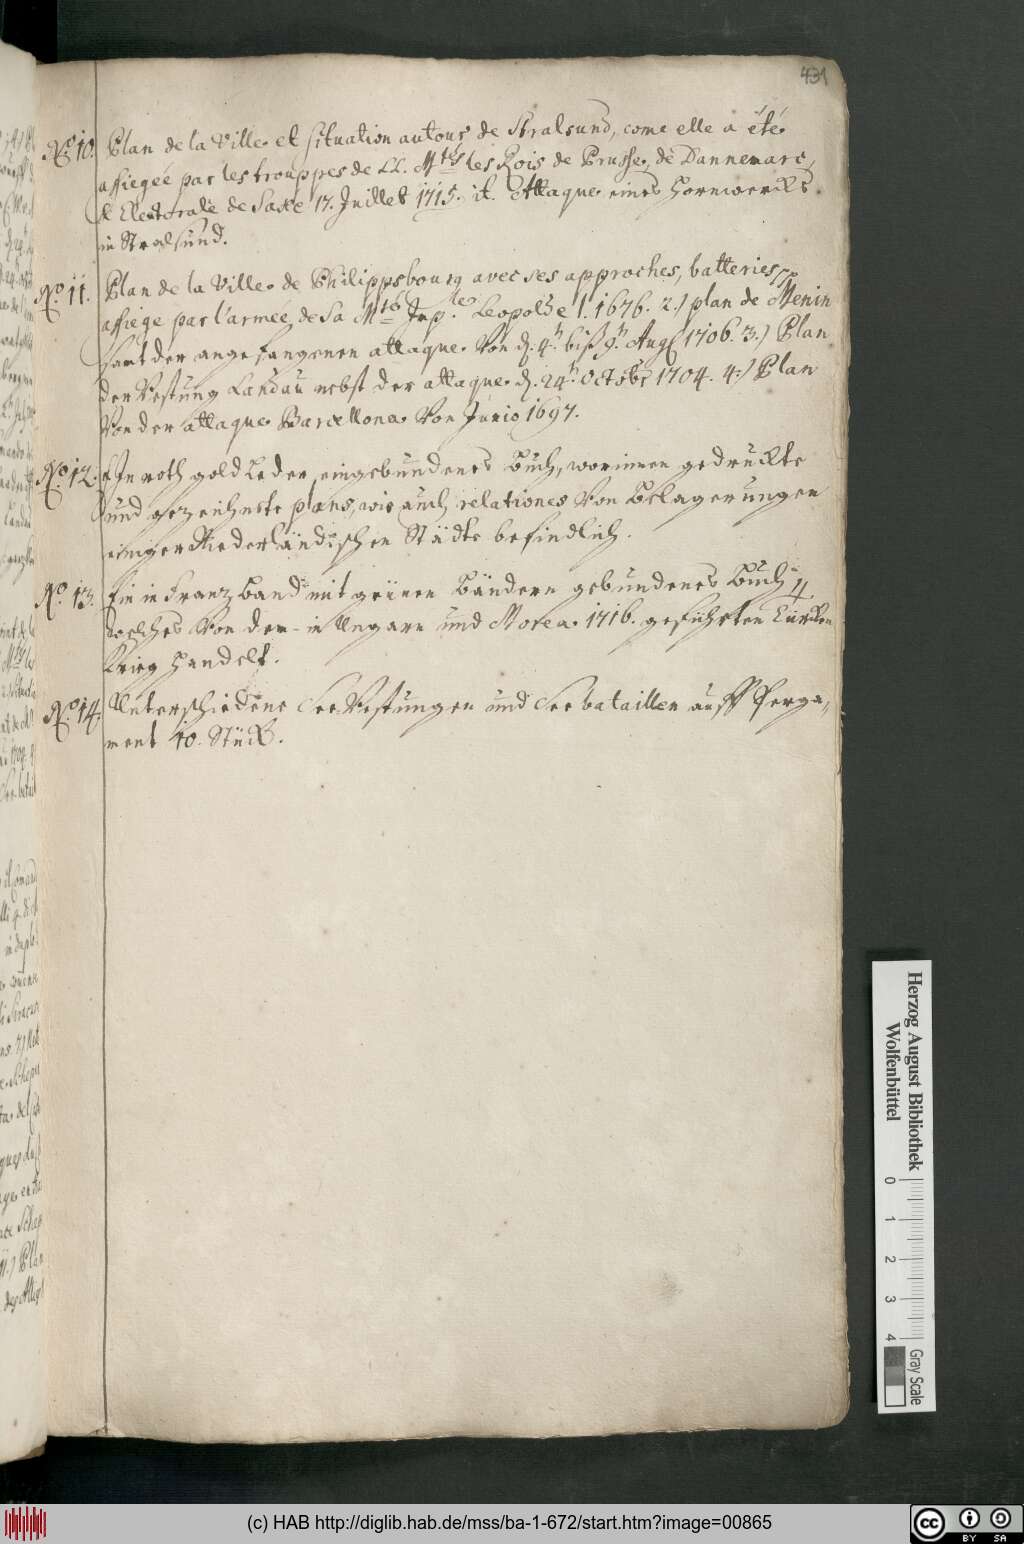 431
No. 10. Plan de la Ville et situation autour de Stralsund, come elle a été
assiegée par les trouppes de LL. Mtés les Rois de Prusse, de Dannemarc,
& Electorale de Saxe 17. Juillet 1715. it. Attaque eines Hornwercks
in Stralsund.
No. 11. Plan de la Ville de Philippsbourg avec ses approches, batteries
assiege par l'armée de Sa Mté Imp.le Leopold 1. 1676. 2.) plan de Menin
samt der angefangenen attaque von d. 4. biß 9. Aug. 1706. 3.) Plan
der Vestung Landau nebst der attaque d. 24t October 1704. 4.) Plan
Von der attaque Barcellona Von Junio 1697.
No. 12. In roth gold Leder eingebundenes Buch, worinnen gedruckte
und gezeichnete plans, wie auch relationes Von Belagerungen
einiger Niederländischen Städte befindlich.
No. 13. Ein in Franzband mit grünen Bändern gebundenes Buch 4
welches Von dem in Ungarn und Morea 1716. geführten Türcken
Krieg handelt.
No. 14. Unterschiedene See Vestungen und See bataillen auff Perga-
ment 10. Stück.
Herzog August Bibliothek
Wolfenbüttel
0 1 2 3 4
Gray Scale
(c) HAB http://diglib.hab.de/mss/ba-1-672/start.htm?image=00865
cc BY SA